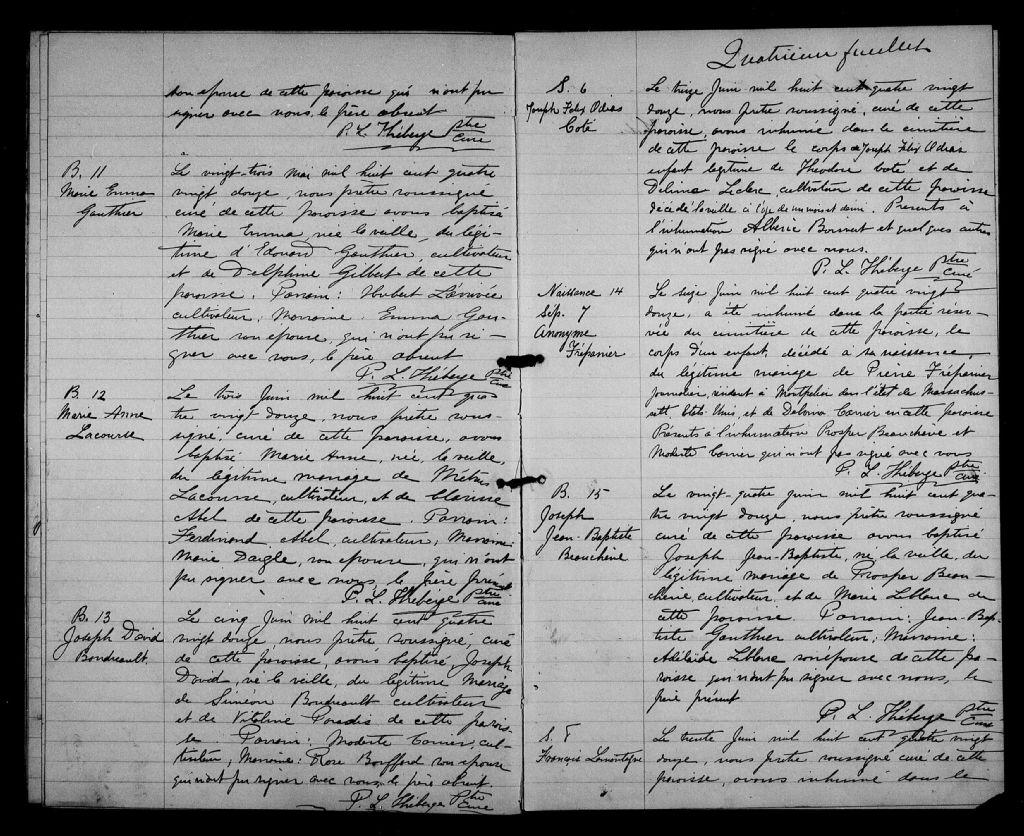 son épouse de cette paroisse qui n'ont pu
signer avec nous, le père absent
P. L. Théberge ptre
curé
B. 11
Marie Emma
Gauthier
Le vingt-trois mai mil huit cent quatre
vingt douze, nous prêtre soussigné
curé de cette paroisse avons baptisé
Marie Emma, née la veille, du légi-
time d'Edouard Gauthier, cultivateur
et de Delphine Gilbert de cette
paroisse. Parrain: Hubert
cultivateur; Marraine: Emma Gau-
thier son épouse, qui n'ont pu si-
gner avec nous, le père absent
P. L. Théberge ptre
curé
B. 12
Marie Anne
Lacourse
Le trois Juin mil huit cent qua
tre vingt douze, nous prêtre sous-
signé, curé de cette paroisse, avons
baptisé Marie Anne, née, la veille,
du légitime mariage de
Lacourse, cultivateur, et de Clarisse
Abel de cette paroisse. Parrain:
Ferdinand Abel, cultivateur; Marraine
Marie Daigle, son épouse, qui n'ont
pu signer avec nous, le père présent
P. L. Théberge ptre
curé
B. 13
Joseph David
Boudreault
Le cinq Juin mil huit cent quatre
vingt douze, nous prêtre soussigné, curé
de cette paroisse, avons baptisé Joseph
David, né la veille, du légitime mariage
de Siméon Boudreault cultivateur
et de Vitaline Paradis de cette parois-
se Parrain: Modeste Carrier, cul-
tivateur, Marraine: Rose son épouse
qui n'ont pu signer avec nous, le père absent.
P. L. Théberge Ptre
Curé
Quatrième feuillet
S. 6
Joseph Felix Odias
Coté
Le treize Juin mil huit cent quatre vingt
douze, nous prêtre soussigné, curé de cette
paroisse, avons inhumé dans le cimetière
de cette paroisse le corps de Joseph Felix Odias
enfant légitime de Théodore Coté et de
Delima Leclerc cultivateur de cette paroisse
décédé la veille à l'âge de un mois et demi. Présents à
l'inhumation Albéric et quelques autres
qui n'ont pas signé avec nous.
P. L. Théberge ptre
curé
Naissance 14
Sép. 7
Anonyme
Trépanier
Le seize Juin mil huit cent quatre vingt
douze, a été inhumé dans la partie réser-
vée du cimetière de cette paroisse, le
corps d'un enfant, décédé à sa naissance,
du légitime mariage de Pierre Trépanier
journalier, résidant à Montpelier dans l'état de Massachus-
sett Etats Unis, et de Carrier en cette paroisse
Présents à l'inhumation Prosper Beauchêne et
Modeste Carrier qui n'ont pas signé avec nous
P. L. Théberge ptre
curé
B. 15
Joseph
Jean-Baptiste
Beauchêne
Le vingt quatre juin mil huit cent qua-
tre vingt douze, nous prêtre soussigné
curé de cette paroisse avons baptisé
Joseph Jean-Baptiste, né la veille, du
légitime mariage de Prosper Beau-
chêne, cultivateur, et de Marie Leblanc de
cette paroisse. Parrain: Jean-Bap-
tiste Gauthier cultivateur; Marraine:
Adélaïde Leblanc son épouse de cette pa-
roisse qui n'ont pu signer avec nous, le
père présent
P. L. Théberge Ptre
Curé
S. 8
François
Le trente Juin mil huit cent quatre vingt
douze, nous prêtre soussigné curé de cette
paroisse, avons inhumé dans le